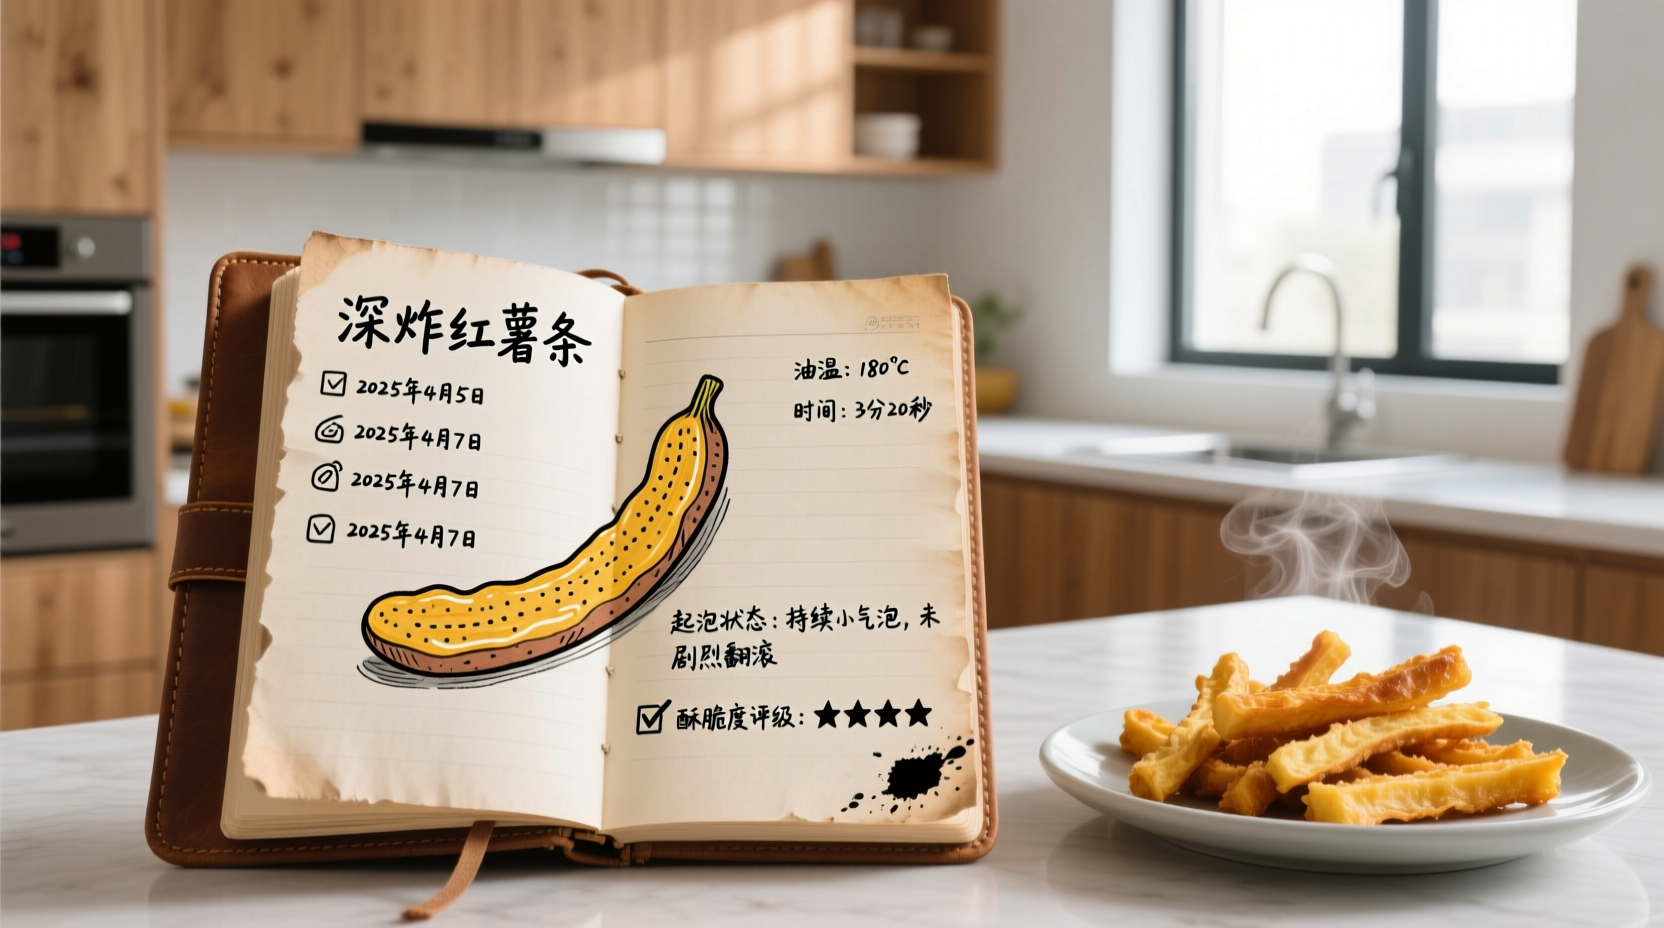 深炸红薯条
2025年4月5日
2025年4月7日
2025年4月7日
2025年4月7日
油温：180°C
时间：3分20秒
起泡状态：持续小气泡，未
剧烈翻滚
酥脆度评级：★★★★